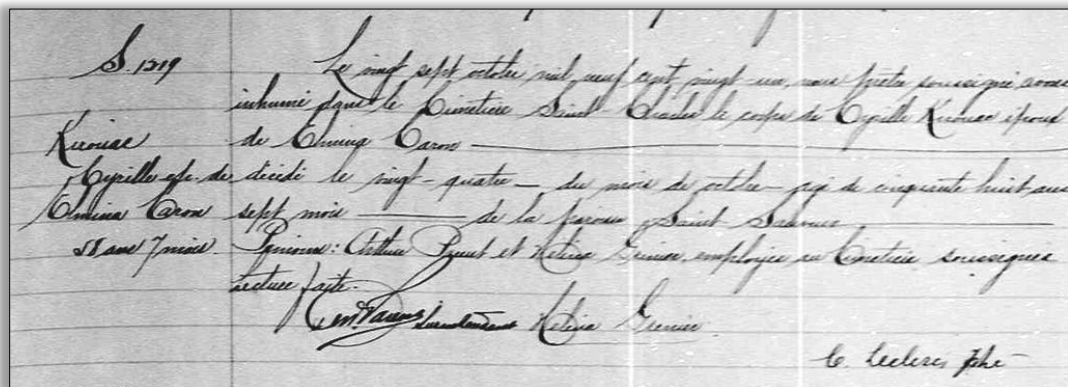 S. 1219
Kirouac
Cyrille ép. de
Elmina Caron
58 ans 7 mois.
Le vingt sept octobre mil neuf cent vingt-un, nous prêtre soussigné avons
inhumé dans le Cimetière Saint-Charles le corps de Cyrille Kirouac époux
de Elmina Caron
décédé le vingt-quatre du mois de octobre âgé de cinquante huit ans
sept mois de la paroisse Saint Sauveur
Témoins: Arthur et Grenier, employés au Cimetière soussignés
lecture faite.
Surintendant Grenier
C. Leclerc Ptre